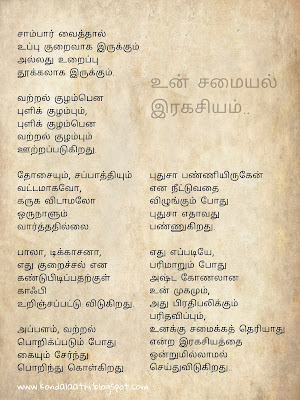 சாம்பார் வைத்தால்
உப்பு குறைவாக இருக்கும்
அல்லது உறைப்பு
தூக்கலாக இருக்கும்.
உன் சமையல்
இரகசியம்..
வற்றல் குழம்பென
புளிக் குழம்பும்,
புளிக் குழம்பென
வற்றல் குழம்பும்
ஊற்றப்படுகிறது.
தோசையும், சப்பாத்தியும்
வட்டமாகவோ,
கருக விடாமலோ
ஒருநாளும்
வார்த்ததில்லை.
பாலா, டிக்காசனா,
எது குறைச்சல் என
கண்டுபிடிப்பதற்குள்
காஃபி
உறிஞ்சப்பட்டு விடுகிறது.
அப்பளம், வற்றல்
பொறிக்கப்படும் போது
கையும் சேர்ந்து
பொறிந்து கொள்கிறது.
புதுசா பண்ணியிருகேன்
என நீட்டுவதை
விழுங்கும் போது
புதுசா எதாவது
பண்ணுகிறது.
எது எப்படியே,
பரிமாறும் போது
அஷ்ட கோணலான
உன் முகமும்,
அது பிரதிபலிக்கும்
பரிதவிப்பும்,
உனக்கு சமைக்கத் தெரியாது
என்ற இரகசியத்தை
ஒன்றுமில்லாமல்
செய்துவிடுகிறது..
www.kondalaathi.blogspot.com